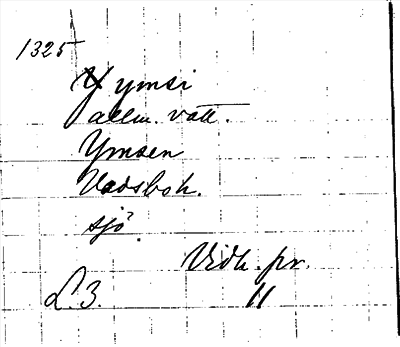 1325
ymsi
allm. vatt.
Ymsen
Vadsboh.
sjö
Vidh. pr.
L. 3. 11